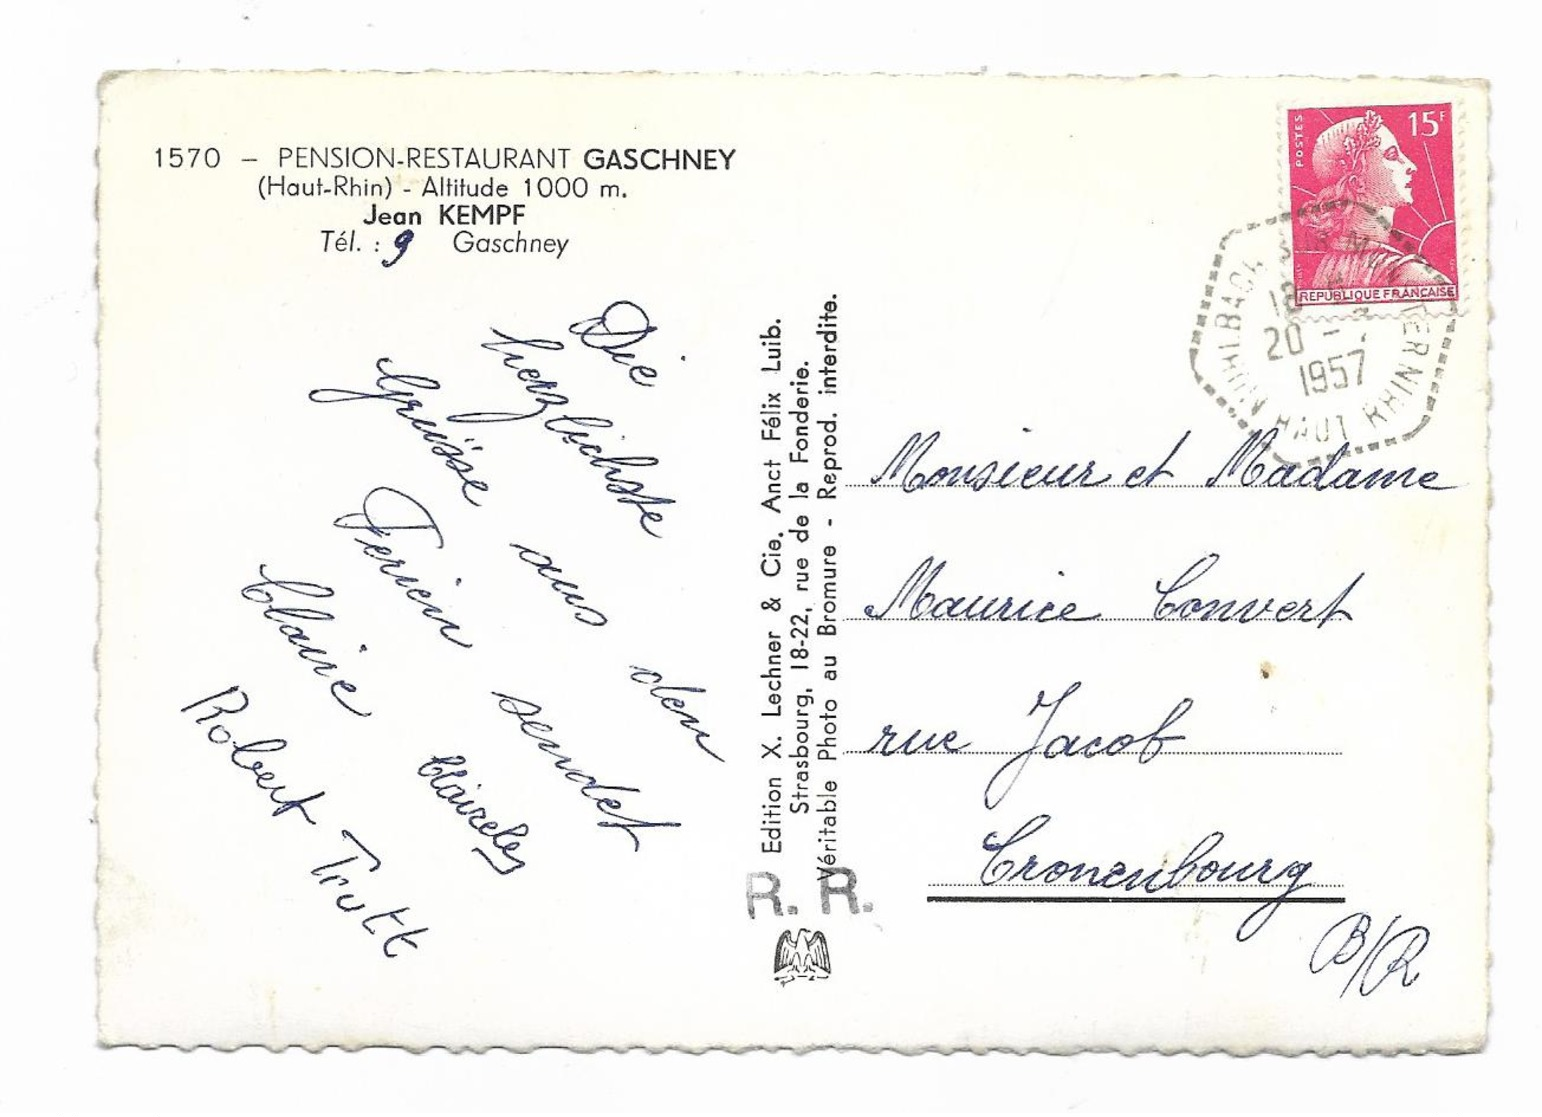 1570 – PENSION-RESTAURANT GASCHNEY
(Haut-Rhin) - Altitude 1000 m.
Jean KEMPF
Tél. : 9 Gaschney
Die
herzlichste
Grüsse aus den
Ferien sendet
Claire Claireley
Robert Trutt
Edition X. Lechner & Cie, Anct Félix Luib.
Strasbourg, 18-22, rue de la Fonderie.
Véritable Photo au Bromure - Reprod. interdite.
R. R.
POSTES
15F
REPUBLIQUE FRANÇAISE
MUHLBACH SUR MUNSTER
18
20 -
1957
HAUT RHIN
Monsieur et Madame
Maurice Convert
rue Jacob
Cronenbourg
B/R